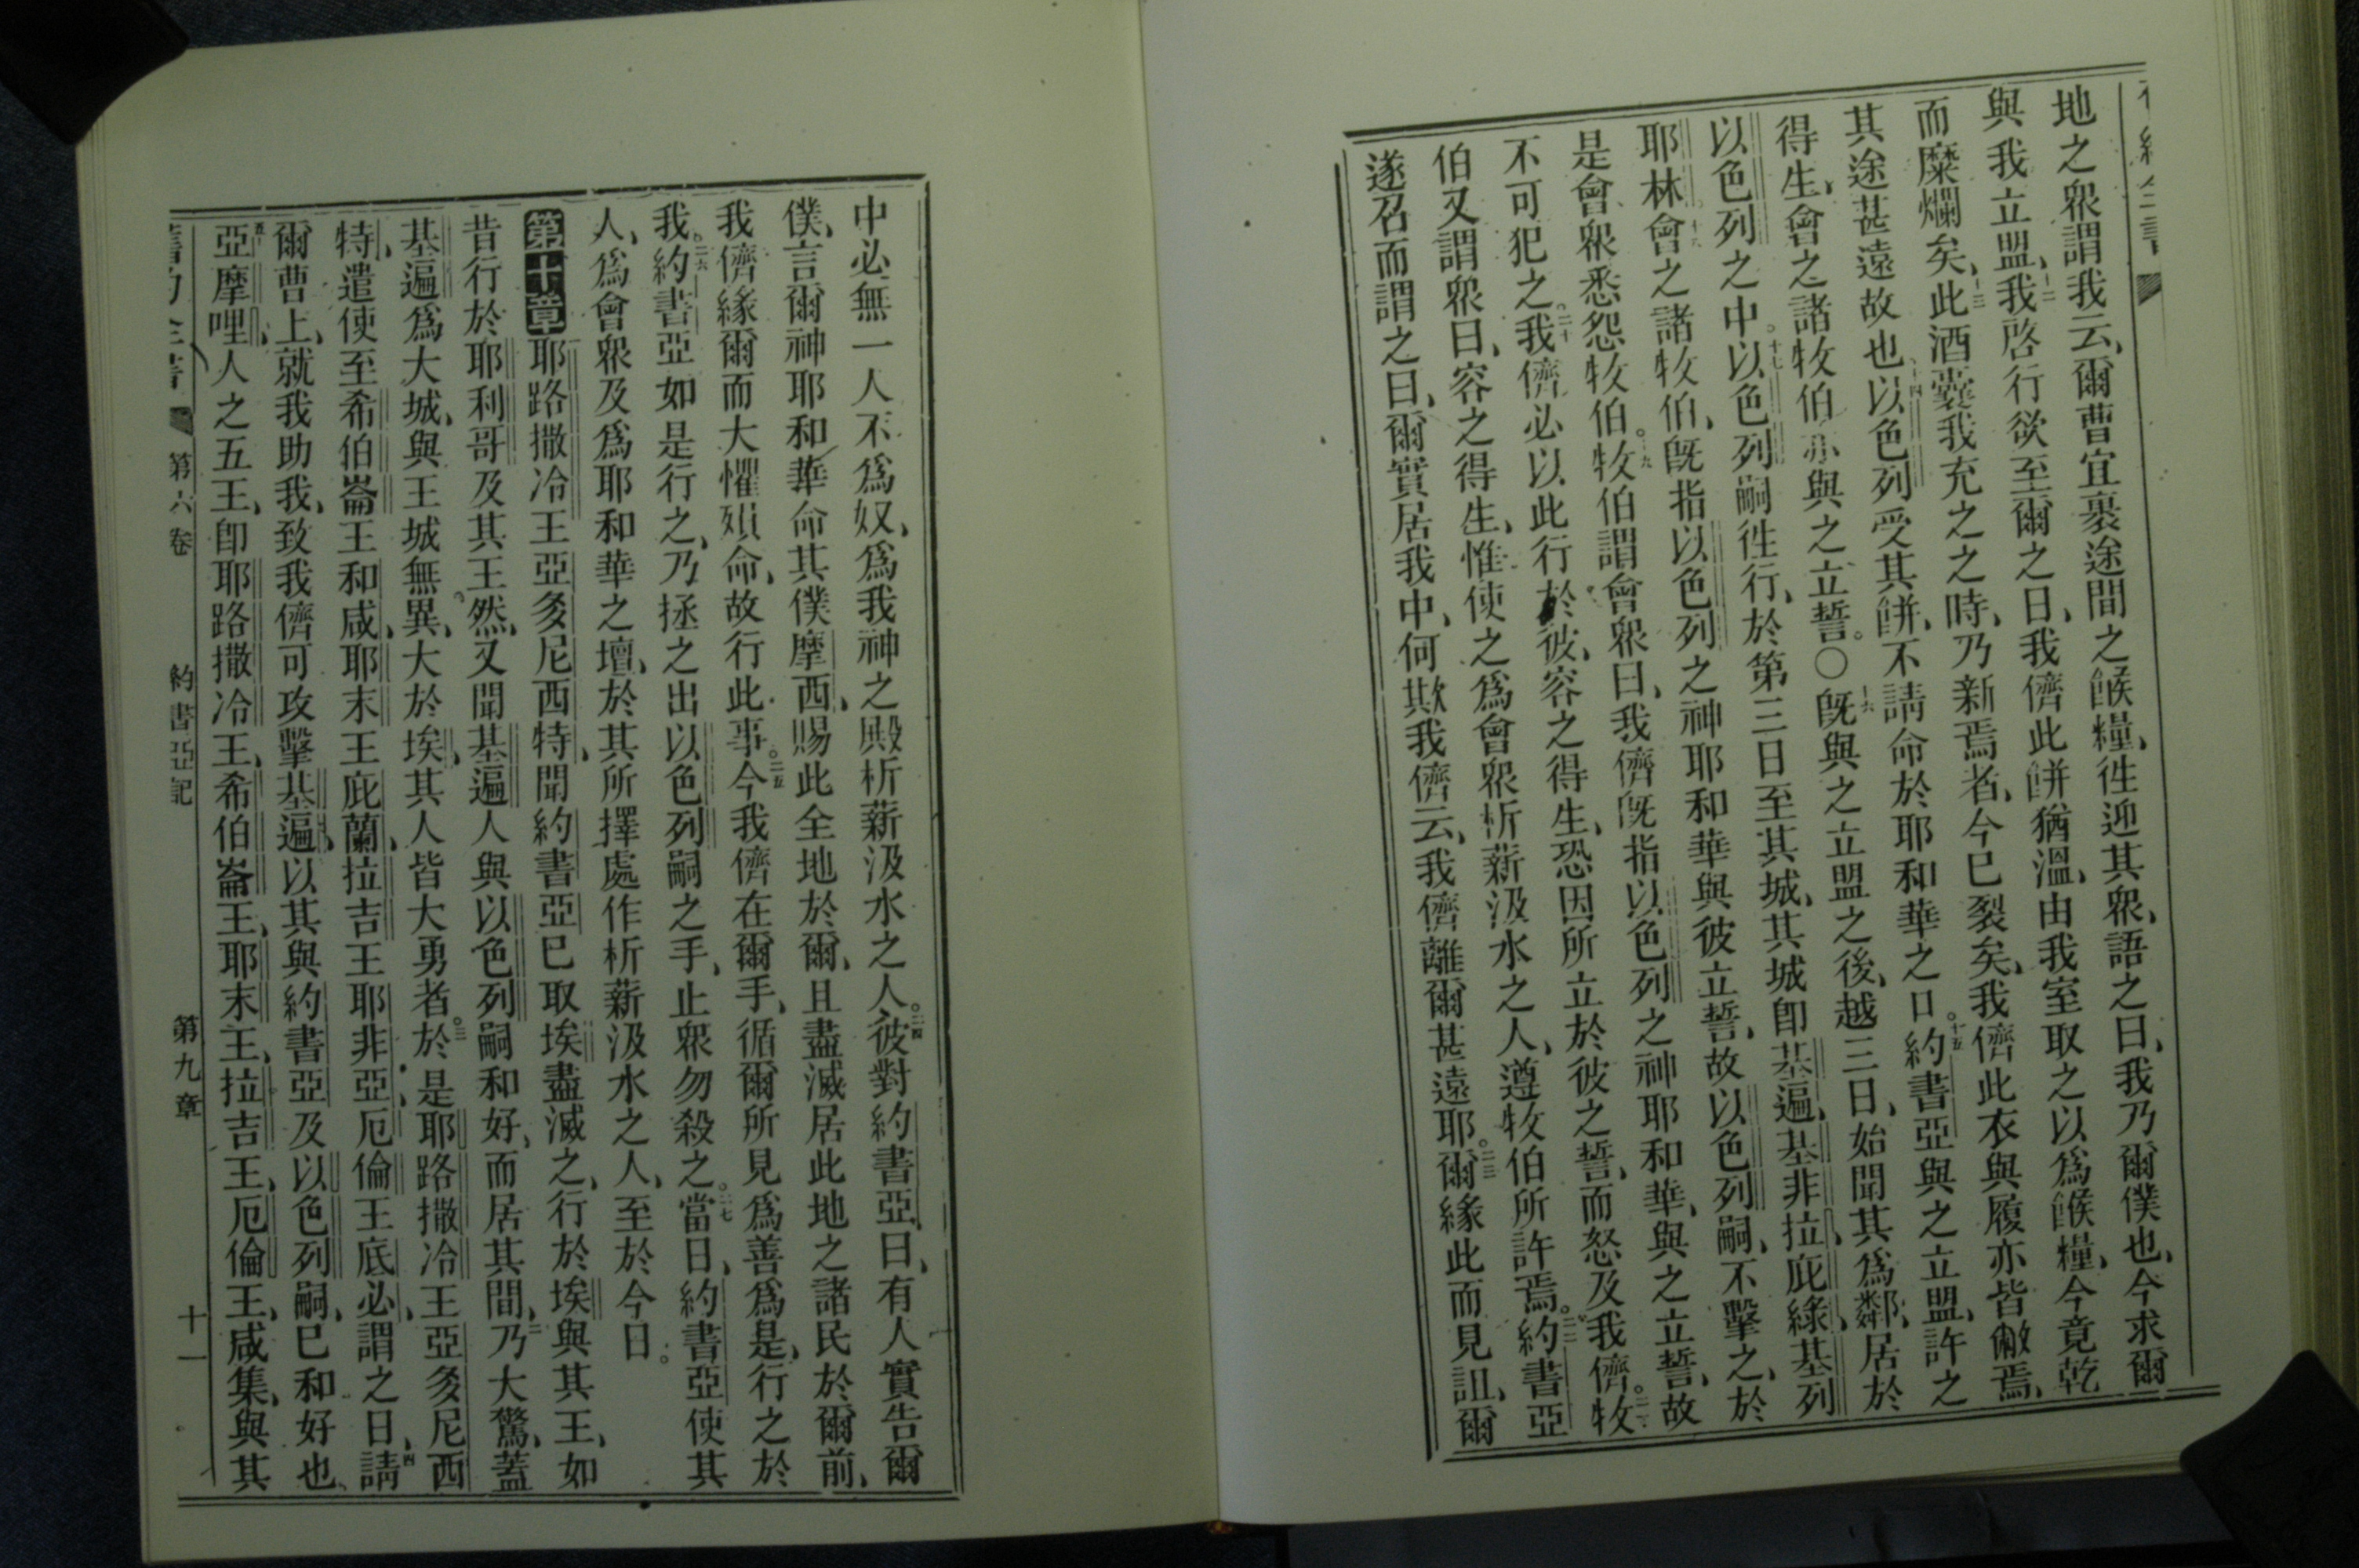 地之眾謂我云、爾曹宜裹途間之餱糧、徃迎其眾、語之曰、我乃爾僕也、今求爾
與我立盟、十二我啓行欲至爾之日、我儕此餅猶溫、由我室取之以爲餱糧、今竟乾
而糜爛矣、十三此酒囊我充之之時、乃新焉者、今已裂矣、我儕此衣與履亦皆敝焉、
其途甚遠故也、十四以色列受其餅、不請命於耶和華之口。十五約書亞與之立盟、許之
得生、會之諸牧伯亦與之立誓。〇十六旣與之立盟之後、越三日、始聞其爲鄰、居於
以色列之中。十七以色列嗣徃行、於第三日至其城、其城卽基遍、基非拉、庇綠、基列
耶林、十八會之諸牧伯、旣指以色列之神耶和華與彼立誓、故以色列嗣、不擊之、於
是會眾悉怨牧伯。十九牧伯謂會眾曰、我儕旣指以色列之神耶和華、與之立誓、故
不可犯之。二十我儕必以此行於彼、容之得生、恐因所立於彼之誓、而怒及我儕。二一牧
伯又謂眾曰、容之得生、惟使之爲會眾析薪汲水之人、遵牧伯所許焉。二二約書亞
遂召而謂之曰、爾實居我中、何欺我儕云、我儕離爾甚遠耶。二三爾緣此而見詛、爾
中必無一人不爲奴、爲我神之殿析薪汲水之人。二四彼對約書亞曰、有人實告爾
僕、言爾神耶和華命其僕摩西、賜此全地於爾、且盡滅居此地之諸民於爾前、
我儕緣爾而大懼殞命、故行此事。二五今我儕在爾手、循爾所見爲善爲是、行之於
我。二六約書亞如是行之、乃拯之出以色列嗣之手、止眾勿殺之。二七當日、約書亞使其
人、爲會眾及爲耶和華之壇、於其所擇處作析薪汲水之人、至於今日。
第十章耶路撒冷王亞多尼西特、聞約書亞已取埃盡滅之、行於埃與其王、如
昔行於耶利哥及其王然、又聞基遍人與以色列嗣和好、而居其間、二乃大驚、蓋
基遍爲大城、與王城無異、大於埃、其人皆大勇者。三於是耶路撒冷王亞多尼西
特、遣使至希伯崙王和咸、耶末王庇蘭、拉吉王耶非亞、厄倫王底必、謂之曰、四請
爾曹上、就我助我、致我儕可攻擊基遍、以其與約書亞及以色列嗣、已和好也、
五亞摩哩人之五王、卽耶路撒冷王、希伯崙王、耶末王、拉吉王、厄倫王、咸集、與其
第六卷 約書亞記 第九章 十一